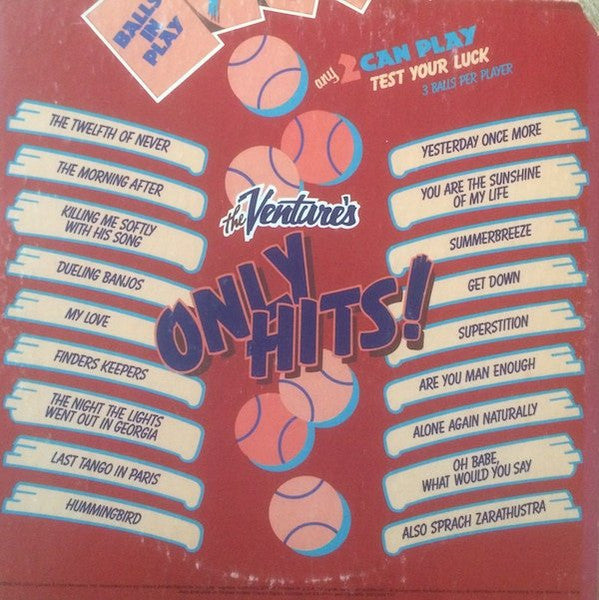 BALLS
IN
PLAY
any 2 CAN PLAY
TEST YOUR LUCK
3 BALLS PER PLAYER
THE TWELFTH OF NEVER
THE MORNING AFTER
KILLING ME SOFTLY
WITH HIS SONG
DUELING BANJOS
MY LOVE
FINDERS KEEPERS
THE NIGHT THE LIGHTS
WENT OUT IN GEORGIA
LAST TANGO IN PARIS
HUMMINGBIRD
the Venture's
ONLY
HITS!
YESTERDAY ONCE MORE
YOU ARE THE SUNSHINE
OF MY LIFE
SUMMERBREEZE
GET DOWN
SUPERSTITION
ARE YOU MAN ENOUGH
ALONE AGAIN NATURALLY
OH BABE,
WHAT WOULD YOU SAY
ALSO SPRACH ZARATHUSTRA